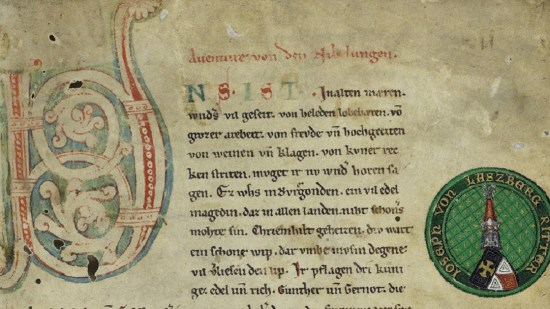 Auenture von den Nibelungen.
NS. IST. In alten mæren.
wnds vil geseit. von heleden lobebæren. võ
grozer arebeit. von frevde vñ hochgeciten
von weinen vñ klagen. von kvner rec
ken striten. mvget ir nv wnds horen sa
gen. Ez whs in Bvrgonden. ein vil edel
magedin. daz in allen landen. niht schoners
mohte sin. Chriemhilt geheizen. div wart
ein schone wip. dar vmbe mvsin degene
vil vliesen den lip. Ir pflagen dri kuni
ge. edel vñ rich. Gunther vñ Gernot. die
IOSEPH VON LASZBERG RITTER